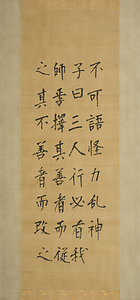 不可語怪力乱神
子曰三人行必有我
師焉擇其善者而從
之其不善者而改之